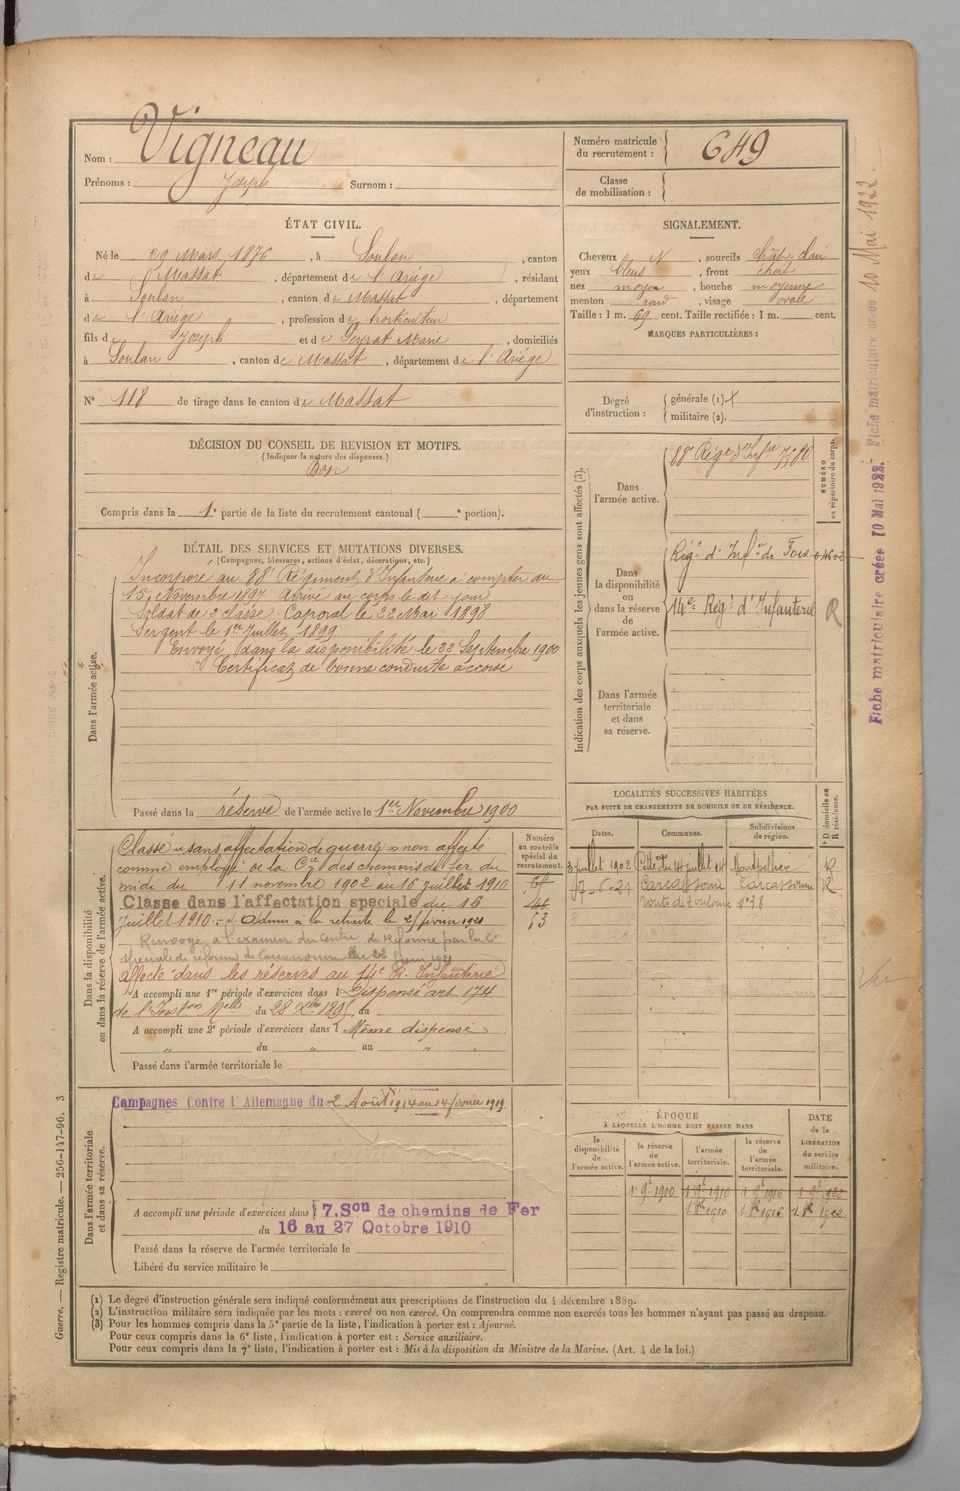 Nom : Vigneau
Prénoms : Joseph Surnom :
Numéro matricule du recrutement : 649
Classe de mobilisation :
ÉTAT CIVIL.
Né le 29 Mars 1876, à Soulan, canton
de Massat, département de l'Ariège, résidant
à Soulan, canton de Massat, département
de l'Ariège, profession de horticulteur
fils de Joseph et de Marie, domiciliés
à Soulan, canton de Massat, département de l'Ariège
N° 118 de tirage dans le canton de Massat
SIGNALEMENT.
Cheveux N, sourcils chât.
yeux bleus, front
nez moyen, bouche moyenne
menton rond, visage ovale
Taille : 1 m. 69 cent. Taille rectifiée : 1 m. cent.
MARQUES PARTICULIÈRES :
Degré d'instruction : générale (1)
militaire (2).
DÉCISION DU CONSEIL DE REVISION ET MOTIFS.
(Indiquer la nature des dispenses.)
Bon
Compris dans la 1e partie de la liste du recrutement cantonal ( e portion).
DÉTAIL DES SERVICES ET MUTATIONS DIVERSES.
(Campagnes, blessures, actions d'éclat, décorations, etc.)
Dans l'armée active.
Incorporé au 88e Régiment d'Infanterie à compter du
15 Novembre 1897 Arrivé au corps le dit jour
Soldat de 2e classe. Caporal le 22 Mai 1898
Sergent le 1er Juillet 1899
Envoyé dans la disponibilité le 22 Septembre 1900
Certificat de bonne conduite accordé
Passé dans la réserve de l'armée active le 1er Novembre 1900
Indication des corps auxquels les jeunes gens sont affectés (3).
NUMÉRO au répertoire du corps.
Dans l'armée active.
88e Régt d'Infie
Dans la disponibilité ou dans la réserve de l'armée active.
Régt d'Infie de Foix
14e Régt d'Infanterie R
Dans l'armée territoriale et dans sa réserve.
Fiche matriculaire créée 10 Mai 1922.
Fiche matriculaire créée 10 Mai 1922.
Dans la disponibilité ou dans la réserve de l'armée active.
Numéro au contrôle spécial du recrutement.
Classé "sans affectation" de guerre "non affecté
comme employé de la Cie des chemins de fer du
midi du 11 novembre 1902 au 16 Juillet 1910
Classé dans l'affectation spéciale du 16
Juillet 1910. Admis à la retraite le
53
Renvoyé à l'examen du Centre de Réforme par la Con
spéciale de réforme de Carcassonne du 22 Juin
affecté dans les réserves au 14e R. Infanterie
A accompli une 1re période d'exercices dans Dispensé art 174
de l'Instron Melle du 28 Xbre 1895 au
A accompli une 2e période d'exercices dans Même dispense
" du " au "
Passé dans l'armée territoriale le
LOCALITÉS SUCCESSIVES HABITÉES
PAR SUITE DE CHANGEMENTS DE DOMICILE OU DE RÉSIDENCE.
Dates. Communes. Subdivisions de région. D. domicile ou R. résidence.
3 juillet 1902 Cette Montpellier R
Carcassonne Carcassonne R
route de Toulouse n° 38
Dans l'armée territoriale et dans sa réserve.
Campagnes Contre l'Allemagne du 2 Août 1914 au 4 février 1919
A accompli une période d'exercices dans 7. Son de chemins de Fer
du 16 au 27 Octobre 1910
Passé dans la réserve de l'armée territoriale le
Libéré du service militaire le
ÉPOQUE
À LAQUELLE L'HOMME DOIT PASSER DANS
la disponibilité de l'armée active. la réserve de l'armée active. l'armée territoriale. la réserve de l'armée territoriale. DATE de la LIBÉRATION du service militaire.
1 9e 1900 1 9e 1910 1 9e 1916 1 9e 1922
(1) Le degré d'instruction générale sera indiqué conformément aux prescriptions de l'instruction du 4 décembre 1889.
(2) L'instruction militaire sera indiquée par les mots : exercé ou non exercé. On comprendra comme non exercés tous les hommes n'ayant pas passé au drapeau.
(3) Pour les hommes compris dans la 5e partie de la liste, l'indication à porter est : Ajourné.
Pour ceux compris dans la 6e liste, l'indication à porter est : Service auxiliaire.
Pour ceux compris dans la 7e liste, l'indication à porter est : Mis à la disposition du Ministre de la Marine. (Art. 4 de la loi.)
Guerre. — Registre matricule. — 256-147-96. 3